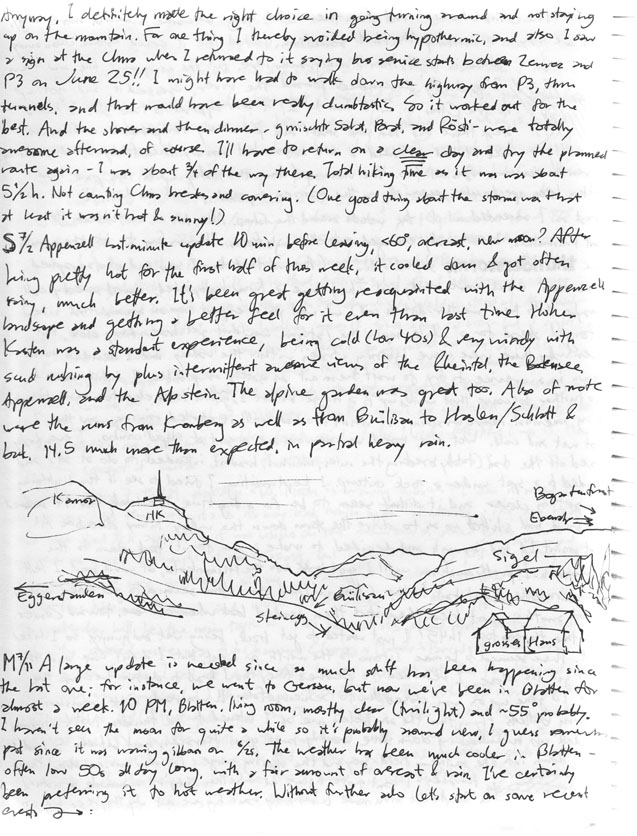 Anyway, I definitely made the right choice in going turning around and not staying
up on the mountain. For one thing I thereby avoided being hypothermic, and also I saw
a sign at the Chas when I returned to it saying bus service starts between and
P3 on June 25!! I might have had to walk down the highway from P3, thru
tunnels, and that would have been really dumbtastic. So it worked out for the
best. And the shower and then dinner - gmischtr Salat, Brot, and Rösti - were totally
awesome afterward, of course. I'll have to return on a clear day and try the planned
route again - I was about 3/4 of the way there. Total hiking time as it was was about
5 1/2 h. Not counting Chas breaks and covering. (One good thing about the storm was that
at least it wasn't hot & sunny!)
S 7/2 Appenzell last-minute update 10 min before leaving, <60°, overcast, new moon? After
being pretty hot for the first half of this week, it cooled down & got often
rainy, much better. It's been great getting reacquainted with the Appenzell
landscape and getting a better feel for it even than last time. Hoher
Kasten was a standout experience, being cold (low 40s) & very windy with
scud rushing by plus intermittent awesome views of the Rheintal, the Bodensee,
Appenzell, and the Alpstein. The alpine garden was great too. Also of note
were the runs from Kronberg as well as from Brülisau to Haslen/Schlatt &
back, 14.5 much more than expected, in partial heavy rain.
Kamor
HK
Bogartenfirst
Ebenalp
Sigel
Eggerstanden
Brülisau
Steinegg
grosses Haus
M 7/11 A large update is needed since so much stuff has been happening since
the last one; for instance, we went to Gersau, but now we've been in Blatten for
almost a week. 10 PM, Blatten, living room, mostly clear (twilight) and ~55° probably.
I haven't seen the moon for quite a while so it's probably around new, I guess somewhat
past since it was waning gibbous on 6/25. The weather has been much cooler in Blatten -
often low 50s all day long, with a fair amount of overcast & rain. I've certainly
been preferring it to hot weather. Without further ado let's start on some recent
events →: